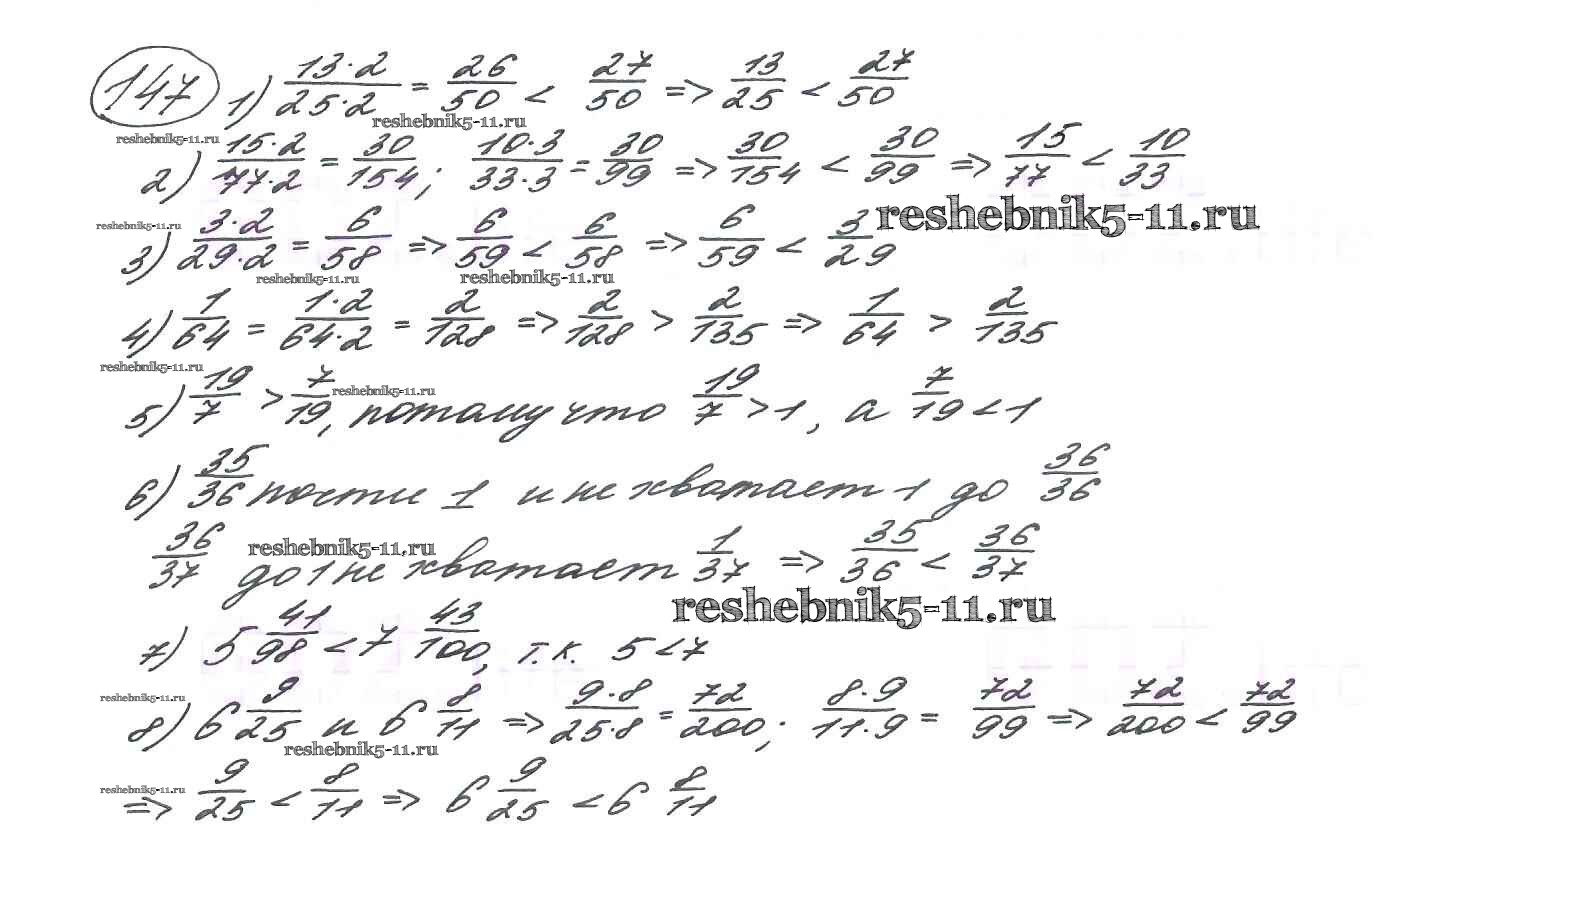 147 1) 13·2/25·2 = 26/50 < 27/50 => 13/25 < 27/50
reshebnik5-11.ru
reshebnik5-11.ru
2) 15·2/77·2 = 30/154; 10·3/33·3 = 30/99 => 30/154 < 30/99 => 15/77 < 10/33
reshebnik5-11.ru
reshebnik5-11.ru
3) 3·2/29·2 = 6/58 => 6/59 < 6/58 => 6/59 < 3/29
reshebnik5-11.ru reshebnik5-11.ru
4) 1/64 = 1·2/64·2 = 2/128 => 2/128 > 2/135 => 1/64 > 2/135
reshebnik5-11.ru
reshebnik5-11.ru
5) 19/7 > 7/19, потому что 19/7 > 1, а 7/19 < 1
6) 35/36 почти 1 и не хватает 1 до 36/36
36/37 до 1 не хватает 1/37 => 35/36 < 36/37
reshebnik5-11.ru
reshebnik5-11.ru
7) 5 41/98 < 7 43/100, т.к. 5 < 7
reshebnik5-11.ru
8) 6 9/25 и 6 8/11 => 9·8/25·8 = 72/200; 8·9/11·9 = 72/99 => 72/200 < 72/99
reshebnik5-11.ru
reshebnik5-11.ru
=> 9/25 < 8/11 => 6 9/25 < 6 8/11